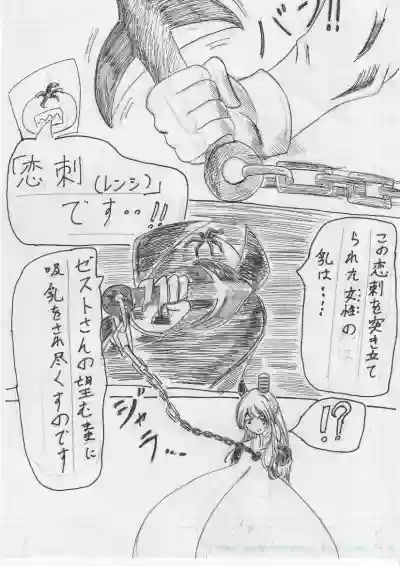 バーン!!
「恋刺
(レンシ)」
です‥!!
この恋刺を突き立て
られた女性の
乳は……
ゼストさんの望む量に
吸乳をされ尽くすのです
ジャラ…
!?